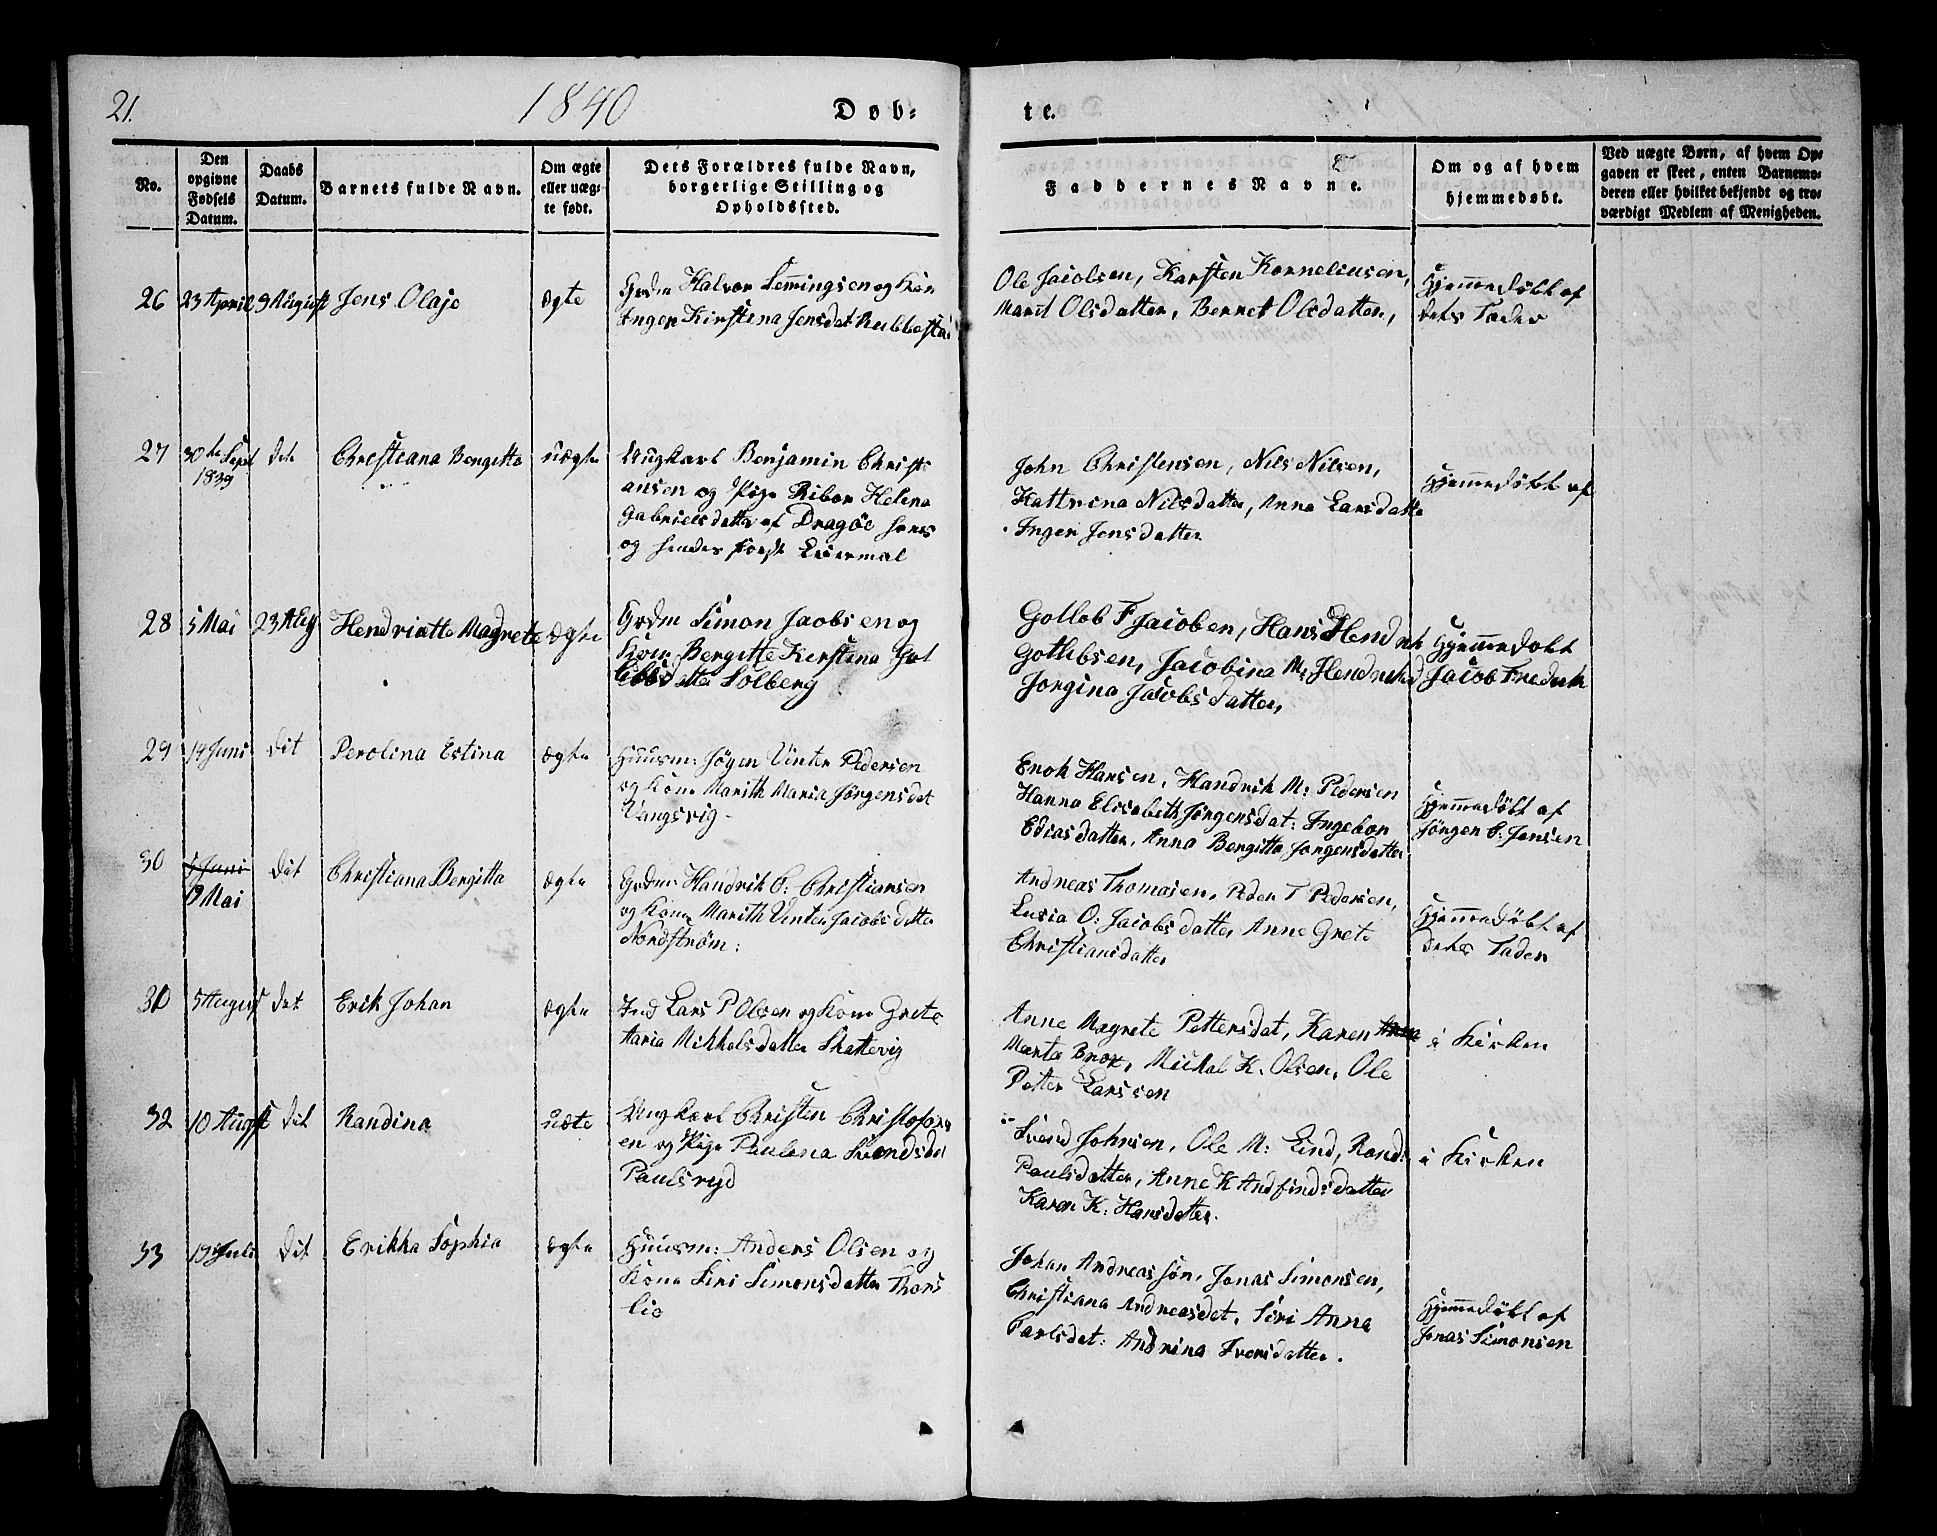 21.
1840
Døb-
te.
No.
Den opgivne Fødsels Datum.
Daabs Datum.
Barnets fulde Navn.
Om ægte eller uæg-te født.
Dets Forældres fulde Navn, borgerlige Stilling og Opholdssted.
Faddernes Navne.
Om og af hvem hjemmedøbt.
Ved uægte Børn, af hvem Op-
gaven er skeet, enten Barnemo-
deren eller hvilket bekjendt og tro-
værdigt Medlem af Menigheden.
26 23 April 29 August Jens Olaje ægte
Grdm Halvor Lemingsen og Kon
Inger Kirstina Jensdat Rubbestad
Ole Jacobsen, Karsten Korneliusen,
Marit Olsdatter, Bernet Olsdatter,
Hjemmedöbt af
dets Fader
27 30te Sept 1839 dit Christiana Bengitta uægte
Ungkarl Benjamin Christi
ansen og Pige Ribor Helena
Gabrielsdatter af Dragöe hans
og hendes første Leiermal
John Christensen, Nils Nilsen,
Kattrina Nilsdatter, Anna Larsdatte
Inger Jensdatter
Hjemmedöbt af
28 5 Mai 23 Aug Hendriette Magrete ægte
Grdm Simon Jacobsen og
Kone Bergitte Kirstina Got
libsdatter Solberg
Gollob F Jacobsen, Hans Hendrik
Gothbsen, Jacobina M: Hendriksd
Jorgina Jacobsdatter,
Hjemmedobt
Jacob Fredrik
29 14 Juni dit Perolina Estina ægte
Huusm: Jögen Vinter Pedersen
og Kone Marith Maria Jörgensdet
Vangsvig -
Enok Hansen, Handrik M: Pedersen
Hanna Elisabeth Jörgensdat: Ingebor
Ediasdatter, Anna Bergitta Jorgensdatter
Hjemmedöbt af
Jörgen C: Jensen
30 5 Juni 19 Mai dit Christiana Bergitta ægte
Grdm: Handrik C: Christiansen
og Kone Marith Vinter Jacobsdatter
Nordström:
Andreas Thomasen, Peder T Pedersen,
Lusia O: Jacobsdatter Anne Grete
Christiansdatter
Hjemmedöbt af
dets Fader
31 5 August det Erik Johan ægte
Ind Lars P Olsen og Kone Grete
Maria Mikkelsdatter Skattevig
Anne Magrete Pettersdat, Karen Anna
Marta Brox, Mickal K. Olsen, Ole
Petter Larssen
i Kirken
32 10 August dit Randina uæte
Ungkarl Christen Christofers
en og Pige Paulena Svendsda
Paulsryd
Svend Johnsen, Ole M: Lind, Rand:
Paulsdatter, Anne K Andfindsdatter
Karen K: Hansdatter.
i Kirken
33 19 Juli dit Erikka Sophia ægte
Huusm: Anders Olsen og
Kone Siri Simonsdatter Thors
lie
Johan Andreassön, Jonas Simonsen,
Christiana Andreasdet, Siri Anna
Parlsdet: Andrina Iversdatter.
Hjemmedöbt af
Jonas Simonsen